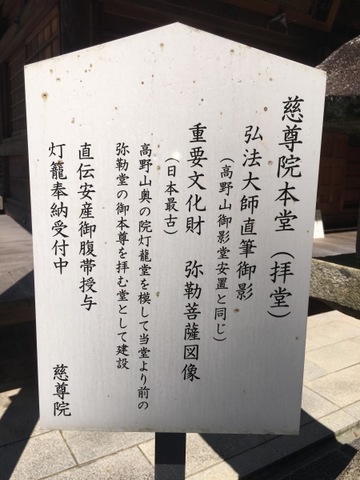 慈尊院本堂（拝堂）
弘法大師直筆御影
（高野山御影堂安置と同じ）
重要文化財　弥勒菩薩図像
（日本最古）
高野山奥の院灯籠堂を模して当堂より前の
弥勒堂の御本尊を拝む堂として建設
直伝安産御腹帯授与
灯籠奉納受付中
慈尊院